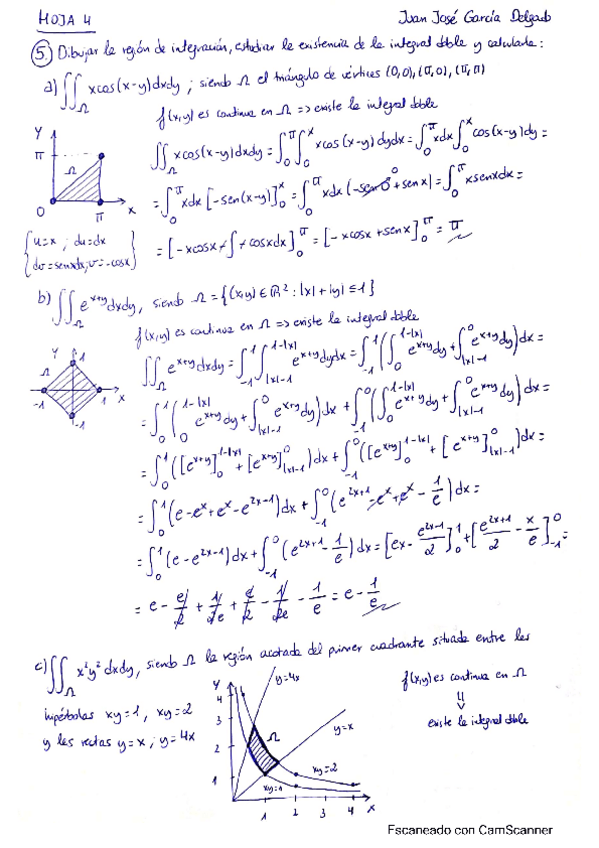 HOJA 4 Juan José García Delgado
5. Dibujar la región de integración, estudiar la existencia de la integral doble y calcularla:
a) ∬_Ω xcos(x-y)dxdy ; siendo Ω el triángulo de vértices (0,0), (π,0), (π,π)
f(x,y) es continua en Ω => existe la integral doble
∬_Ω xcos(x-y)dxdy = ∫_0^π ∫_0^x xcos(x-y)dydx = ∫_0^π xdx ∫_0^x cos(x-y)dy =
= ∫_0^π xdx [-sen(x-y)]_0^x = ∫_0^π xdx (-sen 0 + senx) = ∫_0^π xsenxdx =
{u=x ; du=dx
dv=senxdx; v=-cosx}
= [-xcosx + ∫ + cosxdx]_0^π = [-xcosx + senx]_0^π = π
Y π Ω 0 π X
b) ∬_Ω e^{x+y}dxdy, siendo Ω = {(x,y) ∈ ℝ² : |x| + |y| ≤ 1}
f(x,y) es continua en Ω => existe la integral doble
∬_Ω e^{x+y}dxdy = ∫_{-1}^1 ∫_{|x|-1}^{1-|x|} e^{x+y}dydx = ∫_{-1}^1 (∫_0^{1-|x|} e^{x+y}dy + ∫_{|x|-1}^0 e^{x+y}dy)dx =
= ∫_0^1 (∫_0^{1-|x|} e^{x+y}dy + ∫_{|x|-1}^0 e^{x+y}dy)dx + ∫_{-1}^0 (∫_0^{1-|x|} e^{x+y}dy + ∫_{|x|-1}^0 e^{x+y}dy)dx =
= ∫_0^1 ([e^{x+y}]_0^{1-|x|} + [e^{x+y}]_{|x|-1}^0)dx + ∫_{-1}^0 ([e^{x+y}]_0^{1-|x|} + [e^{x+y}]_{|x|-1}^0)dx =
= ∫_0^1 (e - e^x + e^x - e^{2x-1})dx + ∫_{-1}^0 (e^{2x+1} - e^x + e^x - 1/e)dx =
= ∫_0^1 (e - e^{2x-1})dx + ∫_{-1}^0 (e^{2x+1} - 1/e)dx = [ex - e^{2x-1}/2]_0^1 + [e^{2x+1}/2 - x/e]_{-1}^0 =
= e - e/2 + 1/2e + e/2 - 1/2e - 1/e = e - 1/e
Y 1 Ω -1 1 X -1
c) ∬_Ω x²y² dxdy, siendo Ω la región acotada del primer cuadrante situada entre las
hipérbolas xy=1, xy=2
y las rectas y=x, y=4x
f(x,y) es continua en Ω
⇓
existe la integral doble
Y 4 3 2 1 y=4x y=x Ω xy=2 xy=1 1 2 3 4 X
Escaneado con CamScanner